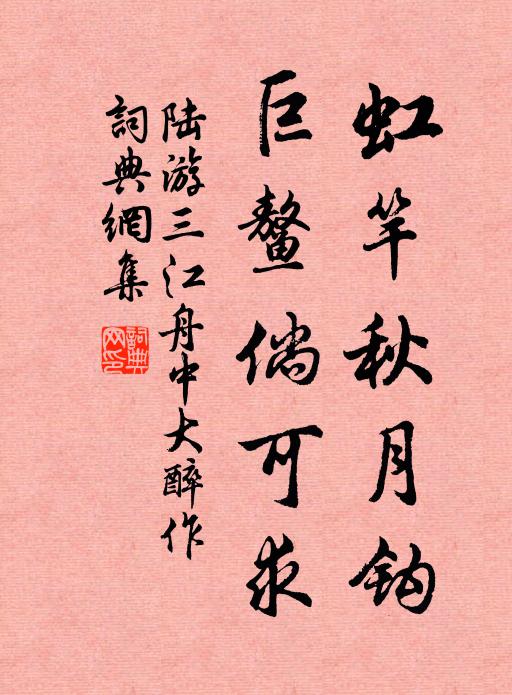 虹竿秋月钩
巨鳌倘可求
陆游三江舟中大醉作
詞典網集
詞典网印